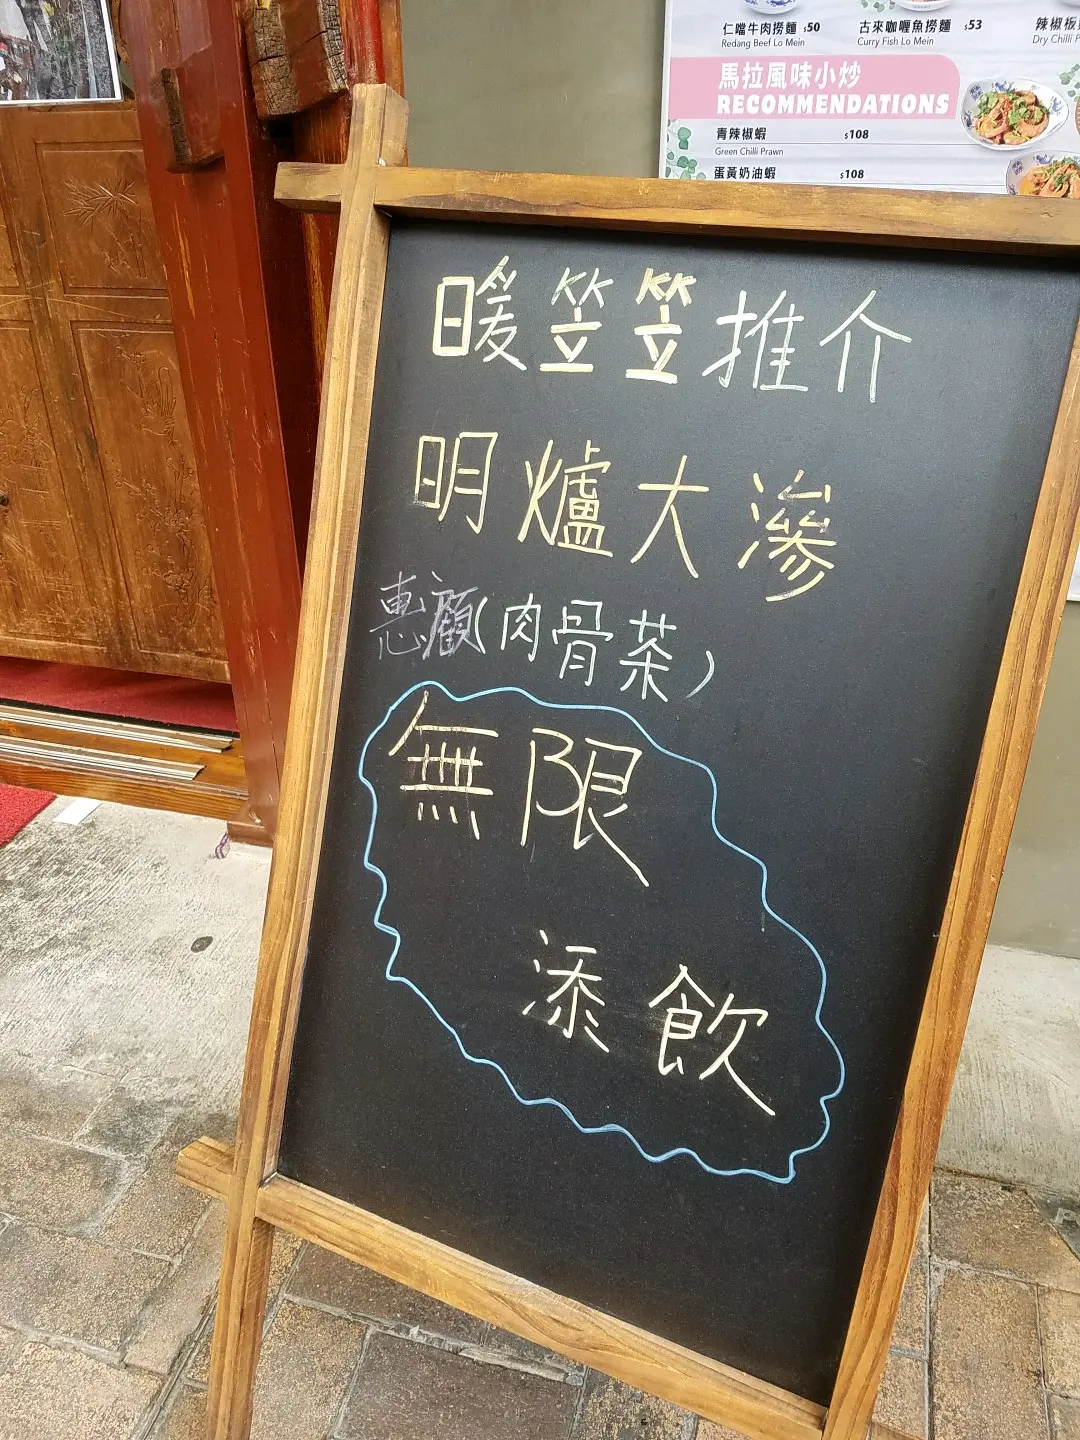 仁噹牛肉撈麵 $50
Redang Beef Lo Mein
古來咖喱魚撈麵 $53
Curry Fish Lo Mein
辣椒板
Dry Chilli
馬拉風味小炒
RECOMMENDATIONS
青辣椒蝦 $108
Green Chilli Prawn
蛋黃奶油蝦 $108
暖笠笠推介
明爐大滲
惠顧(肉骨茶)
無限
添飲